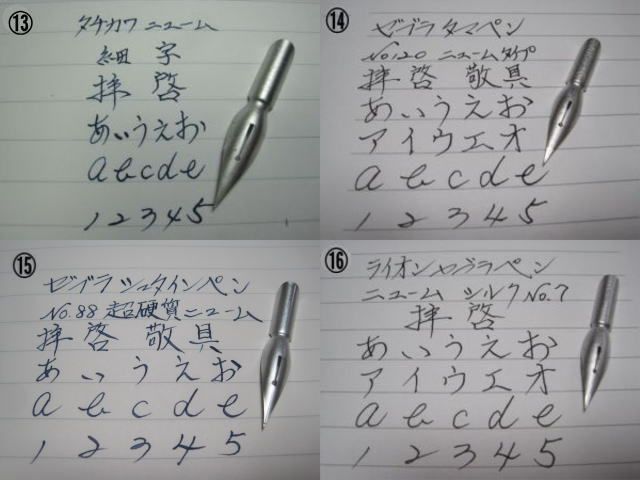 ⑬
タチカワ ニューム
細字
拝啓
あいうえお
abcde
12345
⑭
ゼブラ タマペン
No.120 ニュームタイプ
拝啓 敬具
あいうえお
アイウエオ
abcde
12345
⑮
ゼブラ シュタインペン
No.88 超硬質ニューム
拝啓 敬具
あいうえお
abcde
12345
⑯
ライオン ゼブラペン
ニューム シルク No.7
拝啓
あいうえお
アイウエオ
abcde
12345